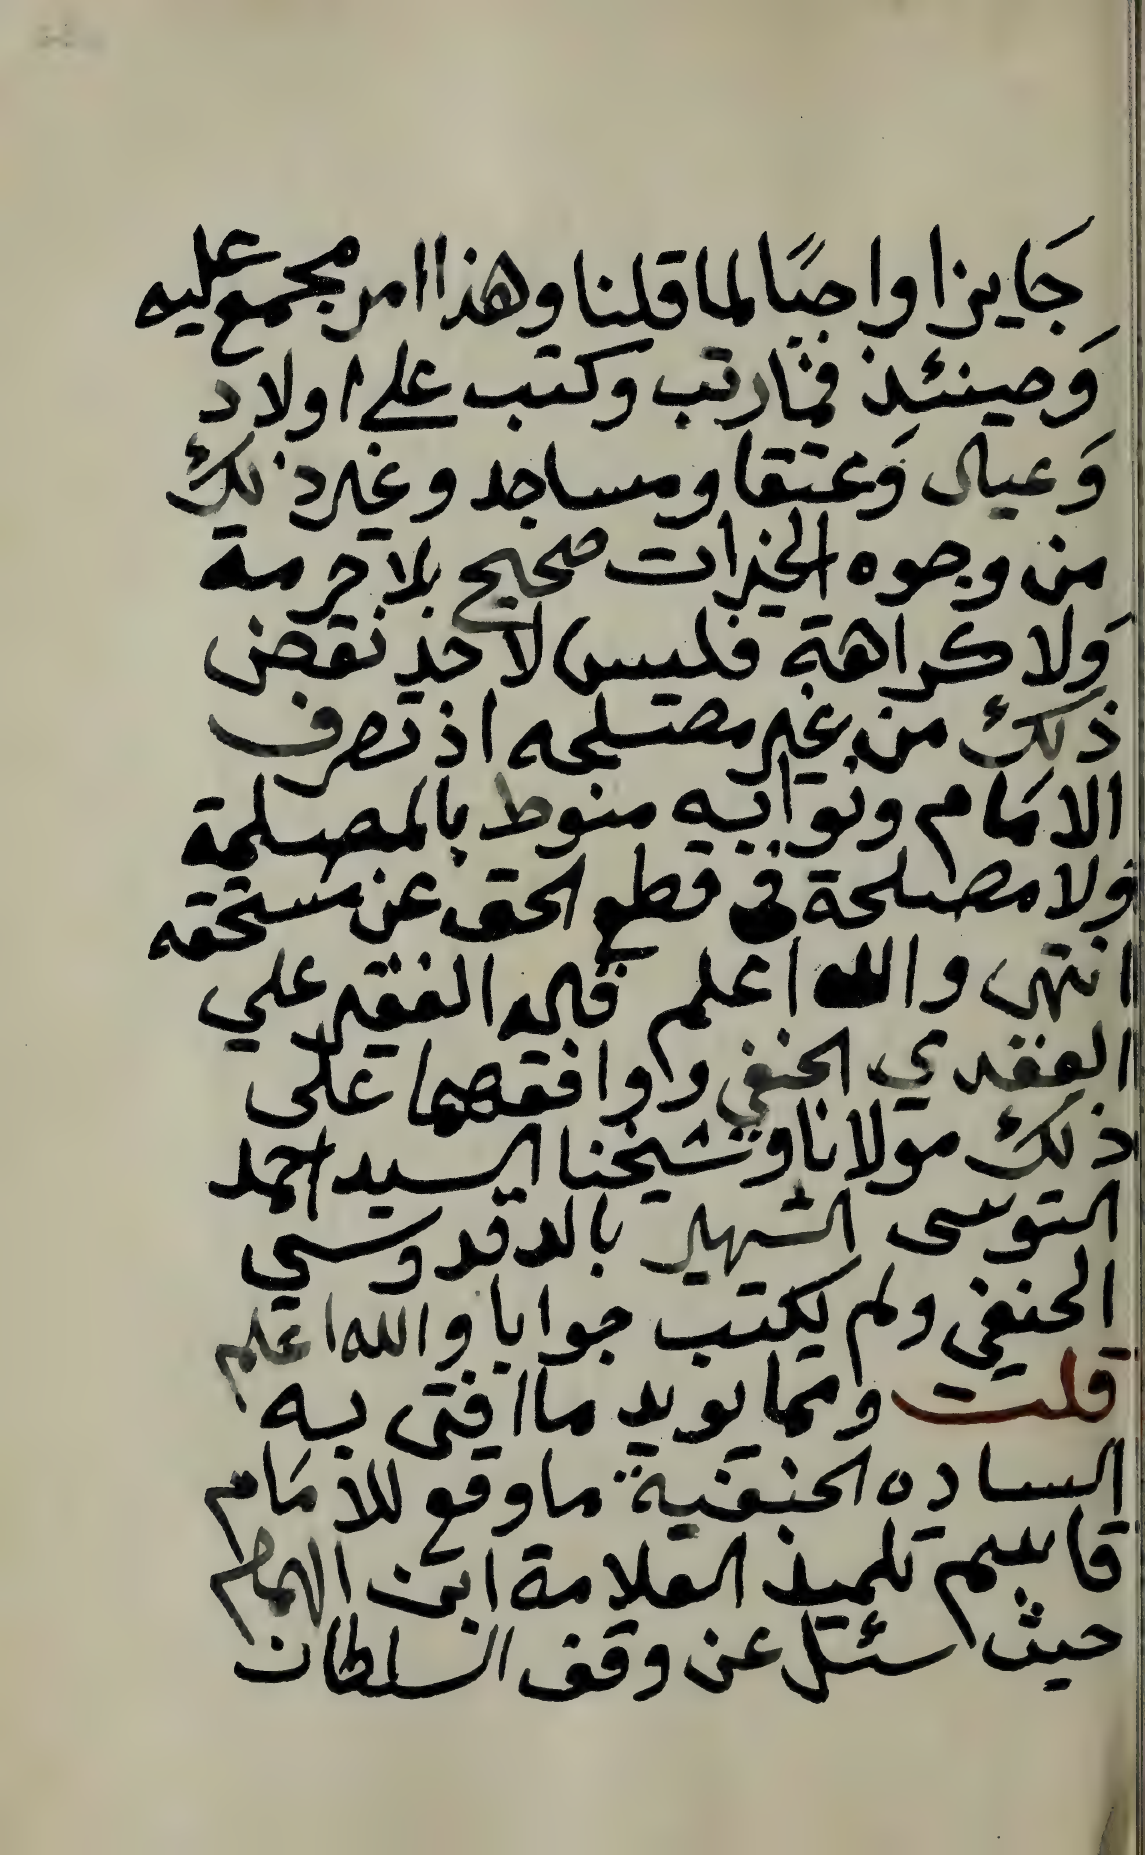 جَايزا واجبًا لما قلنا وهذا امر مجمع عليه
وَحينئذ فما رتب وكتب على اولاد
وَعيال وَعتقا ومساجد وغير ذلك
من وجوه الخيرات صحيح بلا حرمة
وَلا كراهة فليس لاحد نقض
ذلك من غير مصلحه اذ تصرف
الامَام ونوابه منوط بالمصلحة
ولا مصلحة في قطع الحق عن مستحقه
انتهى والله اعلم قاله الفقير علي
العقدي الحنفي ووافقهما على
ذلك مولانا وشيخنا السيد احمد
التونسى الشهير بالدقدوسي
الحنفي ولم يكتب جوابا والله اعلم
قلت ومما يويد ما افتى به
الساده الحنفية ما وقع للامَام
قاسم تلميذ العلامة ابن الهمام
حيث سئل عن وقف السلطان